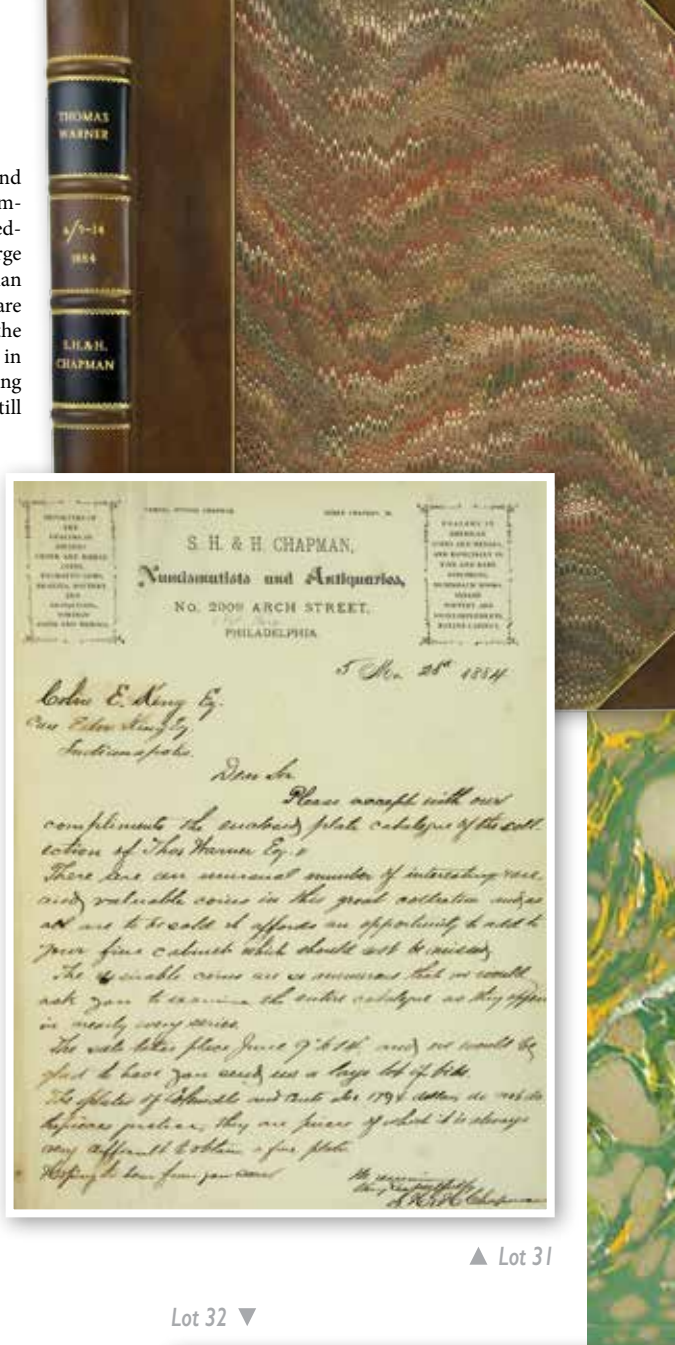 THOMAS
WARNER
6/9-14
1884
S.H. & H.
CHAPMAN
nd
m-
ed-
rge
an
are
the
in
ing
till
S. H. & H. CHAPMAN,
Numismatists and Antiquaries,
No. 2009 ARCH STREET,
PHILADELPHIA
5 Mo. 28th 1884
E. King Eq.
Care King Eq
Indianapolis.
Dear Sir
Please accept with our
compliments the enclosed plate catalogue of the coll
ection of Thos Warner Eq.
There are an unusual number of interesting rare
and valuable coins in this great collection and as
all are to be sold it affords an opportunity to add to
your fine cabinet which should not be missed
The desirable coins are so numerous that we would
ask you to examine the entire catalogue as they appear
in nearly every series.
The sale takes place June 9 to 14 and we would be
glad to have you send us a large lot of bids.
The plates of and Cents also 179 dollar do not do
the pieces justice, they are pieces of which it is always
very difficult to obtain a fine plate.
Hoping to hear from you soon
We remain
Very respectfully
S. H. & H. Chapman
▲ Lot 31
Lot 32 ▼